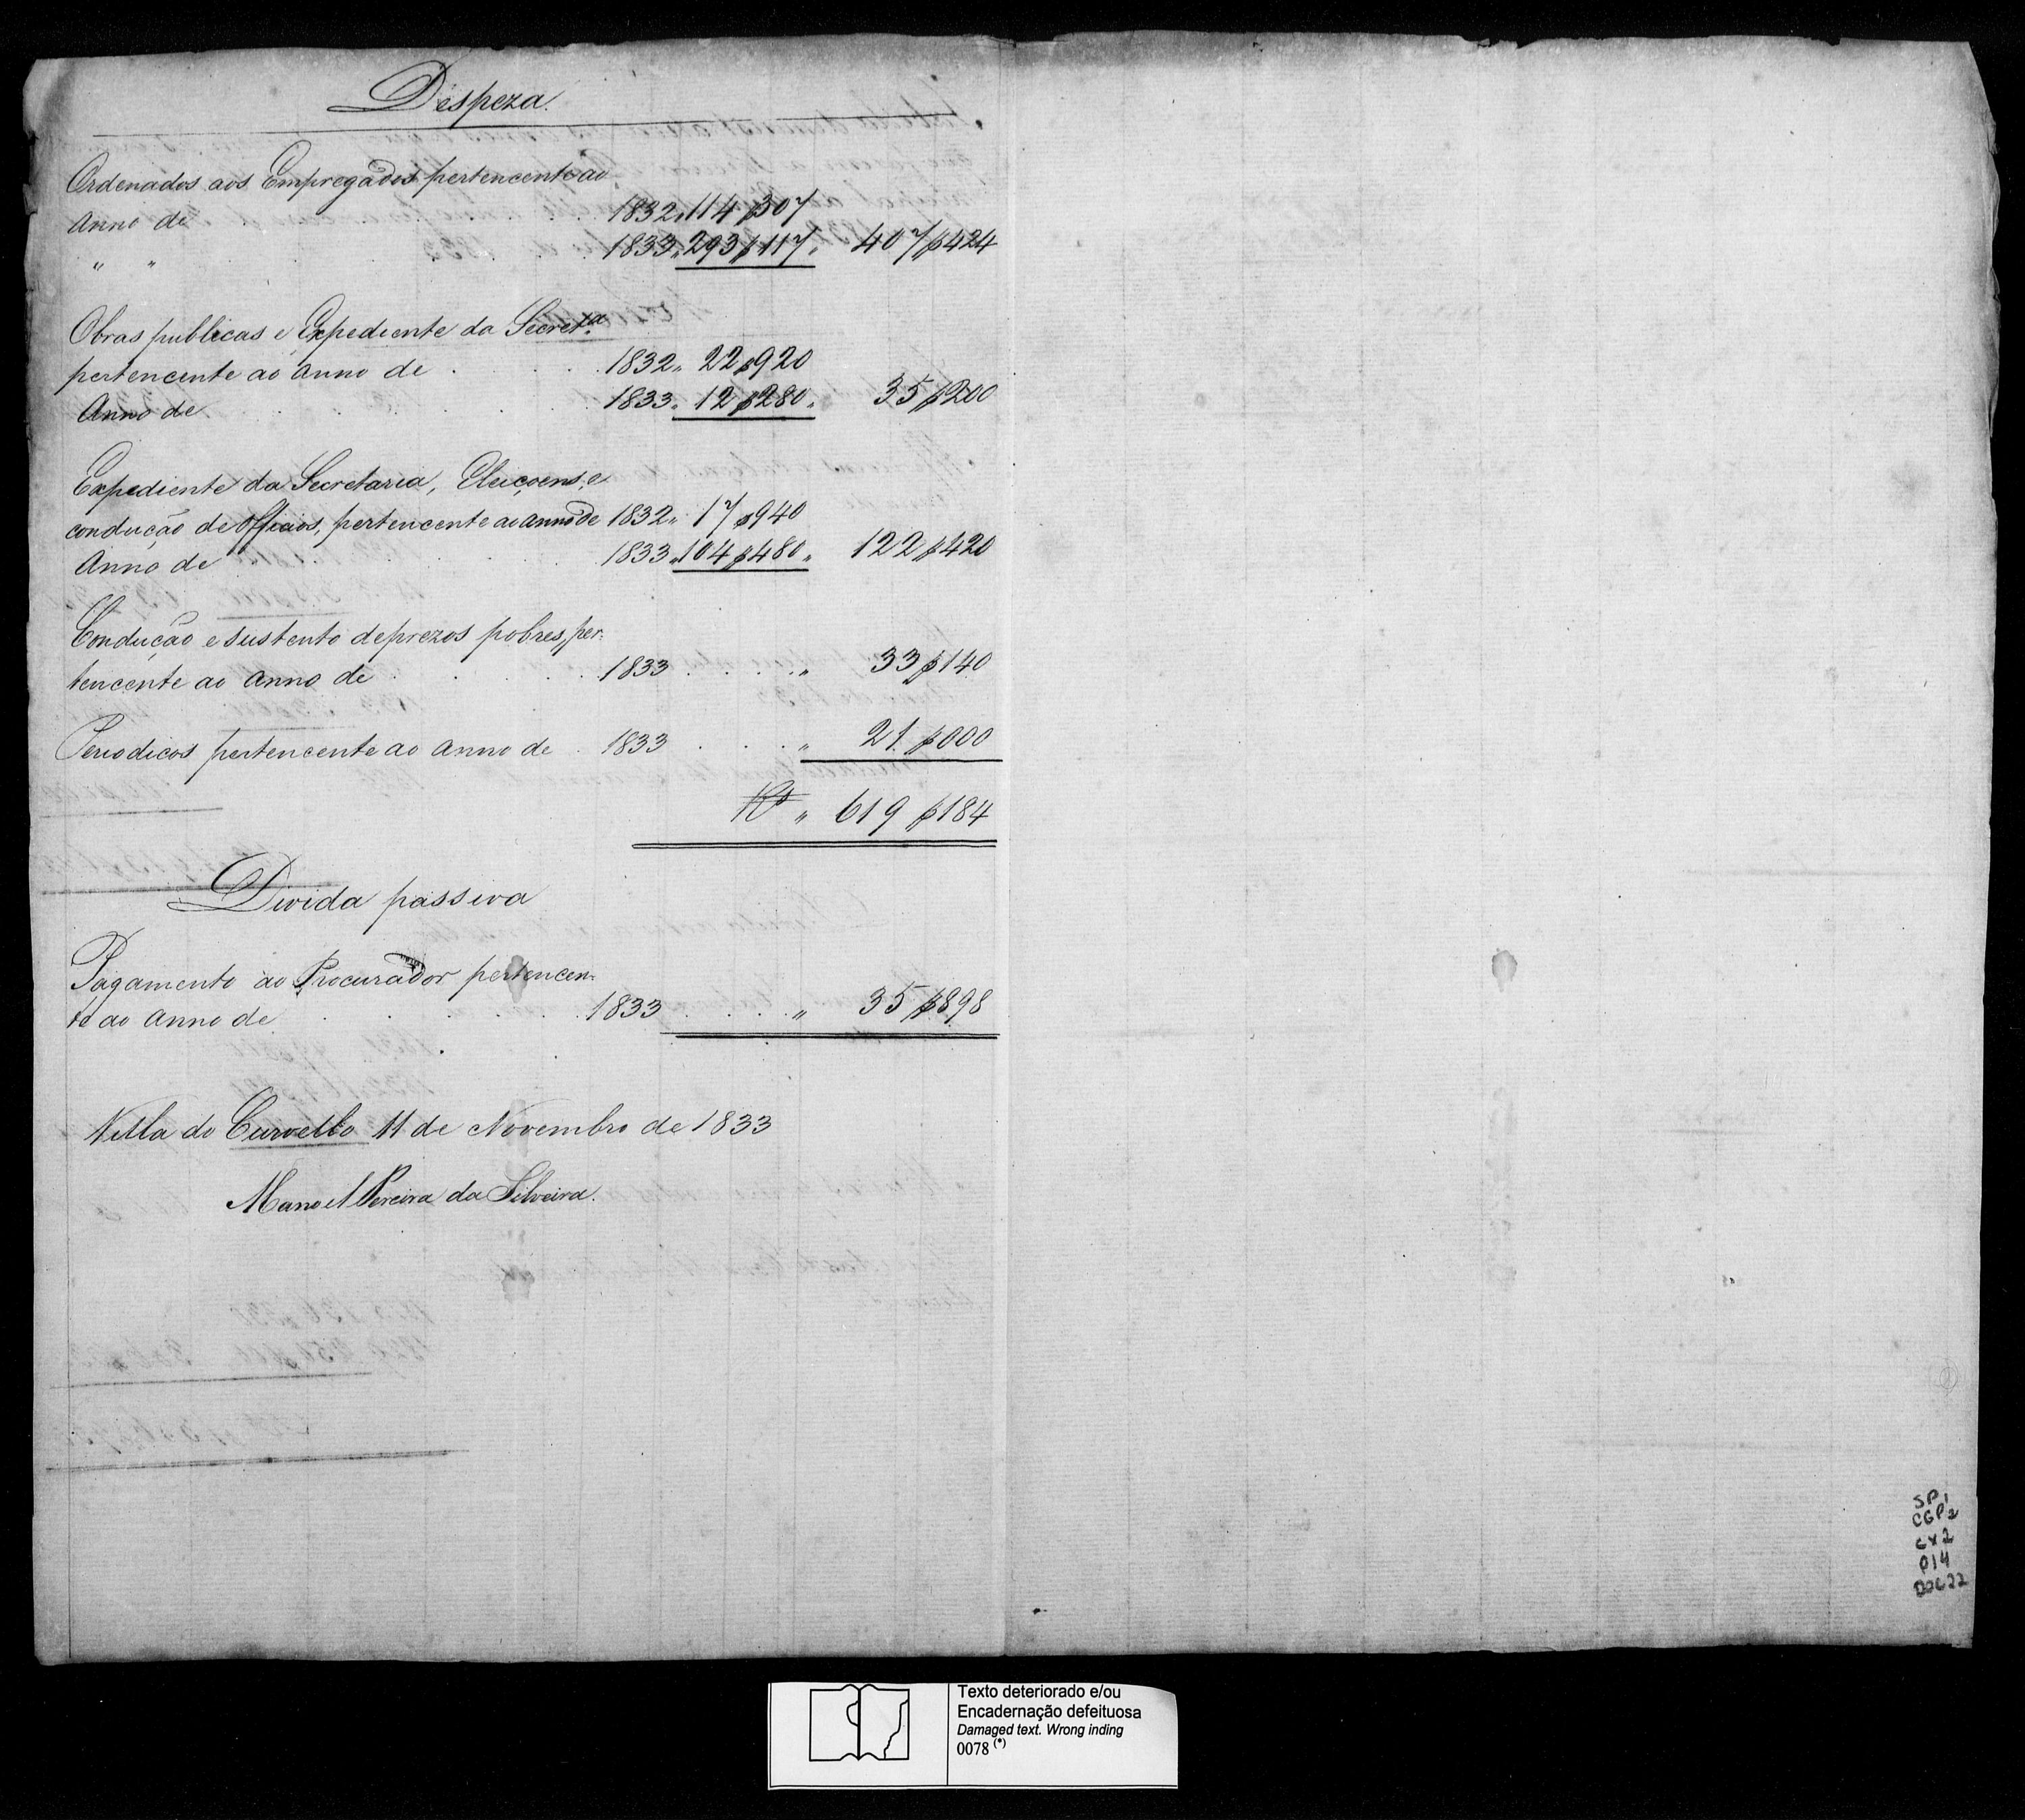 Despeza.
Ordenados aos Empregados pertencente ao
Anno de . . 1832 „ 114$307
„ „ . . . . 1833 „ 293$117 „ 407$424
Obras publicas e Expediente da Secretª
pertencente ao Anno de . . . 1832 „ 22$920
Anno de . . . . . 1833 „ 12$280 „ 35$200
Expediente da Secretaria, Eleiçoens, e
condução de officios, pertencente ao anno de 1832 „ 17$940
Anno de . . . . 1833 „ 104$480 „ 122$420
Condução e sustento de prezos pobres, per-
tencente ao Anno de . . . . 1833 . . . . „ 33$140
Periodicos pertencente ao Anno de . 1833 . . . „ 21$000
Rs „ 619$184
Divida passiva
Pagamento ao Procurador pertencen-
te ao Anno de . . . . . 1833 . . . . „ 35$898
Villa do Curvello 11 de Novembro de 1833
Manoel Pereira da Silveira.
SP1
CGP2
CX2
P14
DOC22
Texto deteriorado e/ou
Encadernação defeituosa
Damaged text. Wrong inding
0078 (*)